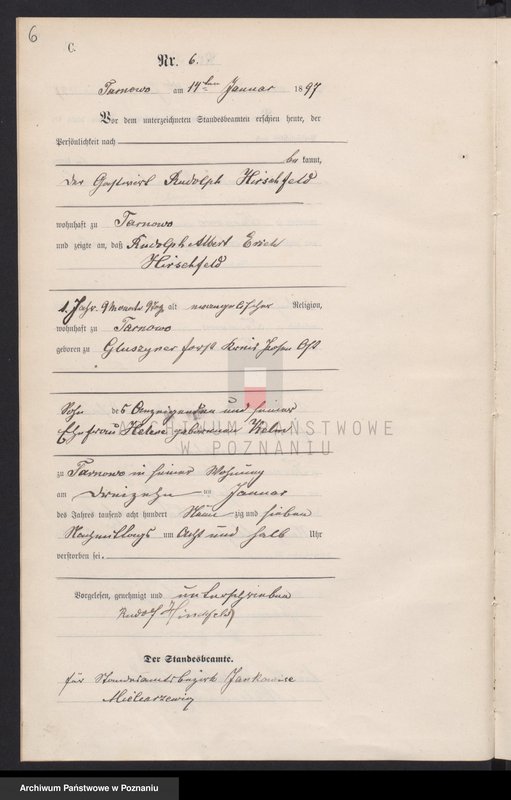 6
C.
Nr. 6.
Tarnowo am 14ten Januar 1897
Vor dem unterzeichneten Standesbeamten erschien heute, der
Persönlichkeit nach
be kannt,
der Gastwirt Rudolph Hirschfeld
wohnhaft zu Tarnowo
und zeigte an, daß Rudolph Albert Erich
Hirschfeld
1 Jahr 9 Monate alt evangelischer Religion,
wohnhaft zu Tarnowo
geboren zu Gluszyner Forst Kreis Posen Ost
Sohn des Anzeigenden und seiner
Ehefrau Helene geborenen
ARCHIWUM PAŃSTWOWE
W POZNANIU
zu Tarnowo in seiner Wohnung
am dreizehn ten Januar
des Jahres tausend acht hundert Neun zig und sieben
Nachmittags um Acht und halb Uhr
verstorben sei.
Vorgelesen, genehmigt und unterschrieben
Rudolf Hirschfeld
Der Standesbeamte.
für Standesamtsbezirk Jankowice
Archiwum Państwowe w Poznaniu